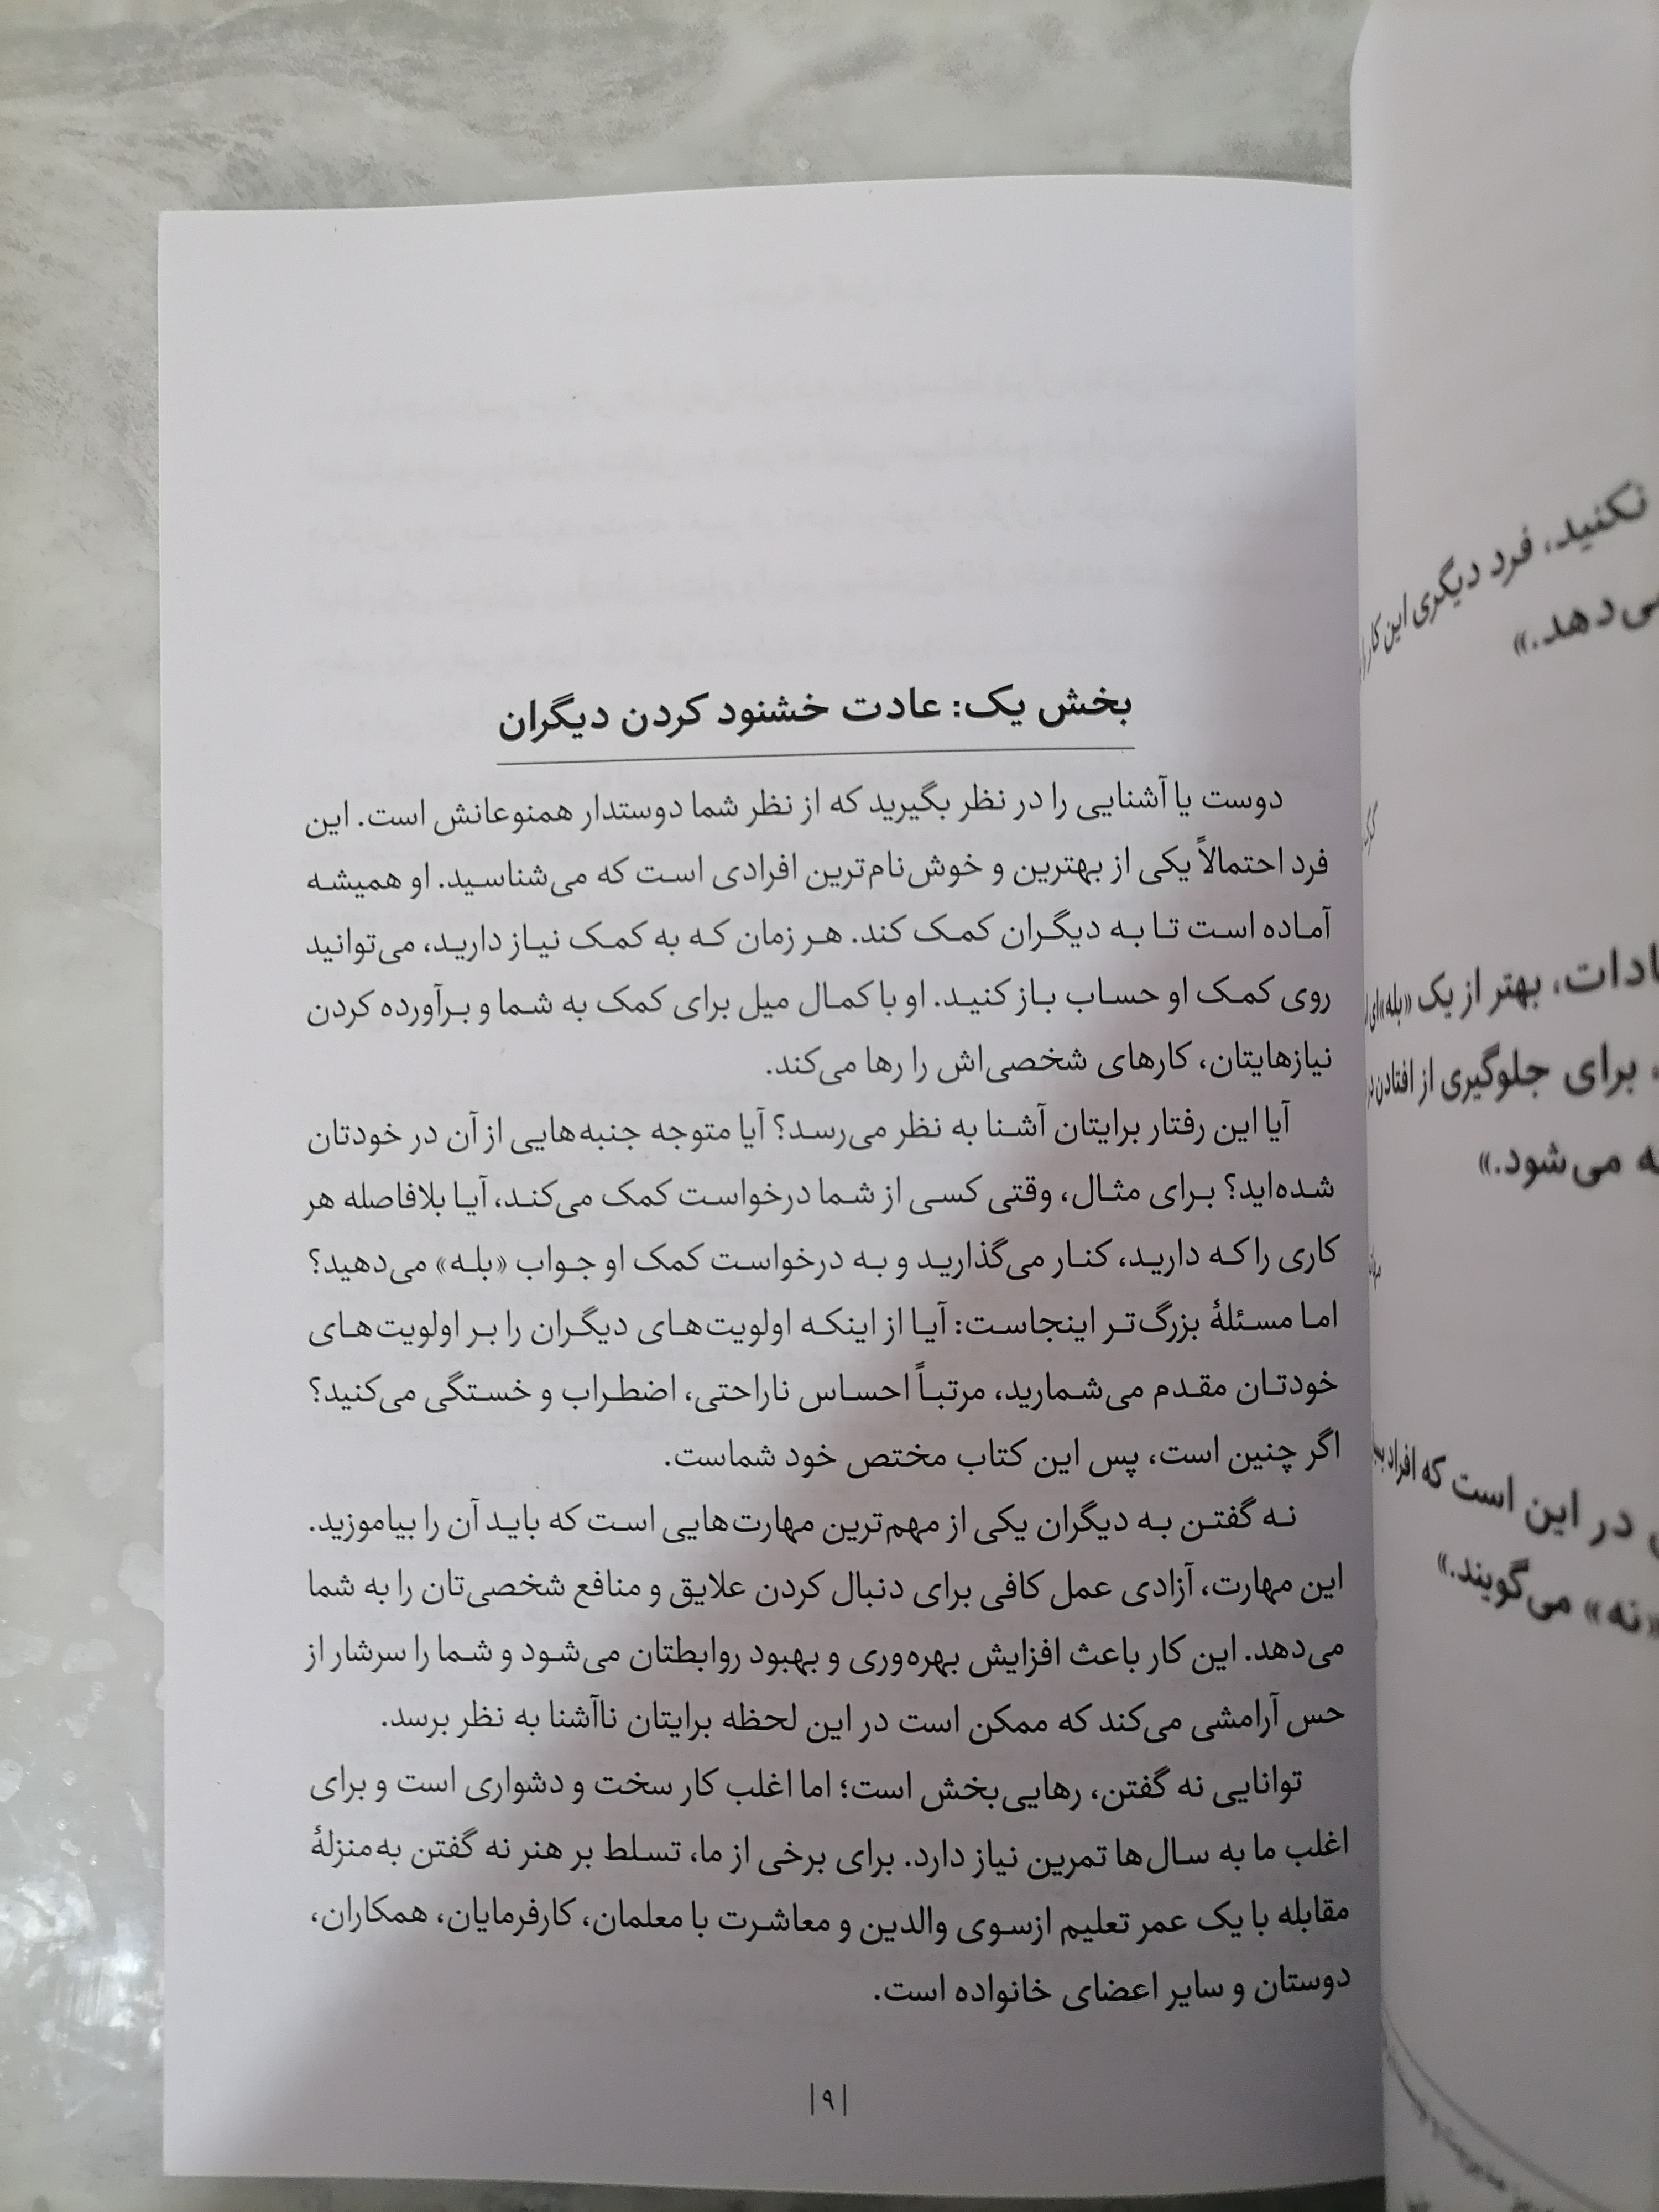 بخش یک: عادت خشنود کردن دیگران
دوست یا آشنایی را در نظر بگیرید که از نظر شما دوستدار همنوعانش است. این
فرد احتمالاً یکی از بهترین و خوش‌نام‌ترین افرادی است که می‌شناسید. او همیشه
آماده است تا به دیگران کمک کند. هر زمان که به کمک نیاز دارید، می‌توانید
روی کمک او حساب باز کنید. او با کمال میل برای کمک به شما و برآورده کردن
نیازهایتان، کارهای شخصی‌اش را رها می‌کند.
آیا این رفتار برایتان آشنا به نظر می‌رسد؟ آیا متوجه جنبه‌هایی از آن در خودتان
شده‌اید؟ برای مثال، وقتی کسی از شما درخواست کمک می‌کند، آیا بلافاصله هر
کاری را که دارید، کنار می‌گذارید و به درخواست کمک او جواب «بله» می‌دهید؟
اما مسئلهٔ بزرگ‌تر اینجاست: آیا از اینکه اولویت‌های دیگران را بر اولویت‌های
خودتان مقدم می‌شمارید، مرتباً احساس ناراحتی، اضطراب و خستگی می‌کنید؟
اگر چنین است، پس این کتاب مختص خود شماست.
نه گفتن به دیگران یکی از مهم‌ترین مهارت‌هایی است که باید آن را بیاموزید.
این مهارت، آزادی عمل کافی برای دنبال کردن علایق و منافع شخصی‌تان را به شما
می‌دهد. این کار باعث افزایش بهره‌وری و بهبود روابطتان می‌شود و شما را سرشار از
حس آرامشی می‌کند که ممکن است در این لحظه برایتان ناآشنا به نظر برسد.
توانایی نه گفتن، رهایی‌بخش است؛ اما اغلب کار سخت و دشواری است و برای
اغلب ما به سال‌ها تمرین نیاز دارد. برای برخی از ما، تسلط بر هنر نه گفتن به‌منزلهٔ
مقابله با یک عمر تعلیم ازسوی والدین و معاشرت با معلمان، کارفرمایان، همکاران،
دوستان و سایر اعضای خانواده است.
|۹|
نکنید، فرد دیگری این کار را
می‌دهد.»
بهتر از یک «بله»ای
برای جلوگیری از افتادن در
می‌شود.»
در این است که افراد
«نه» می‌گویند.»